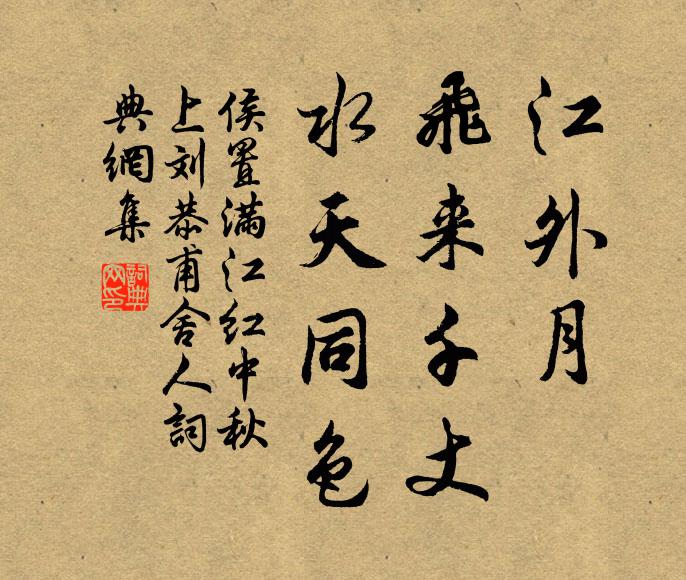 江外月
飛来千丈
水天同色
侯置满江红中秋
上刘恭甫舍人詞
典網集
詞典
网印